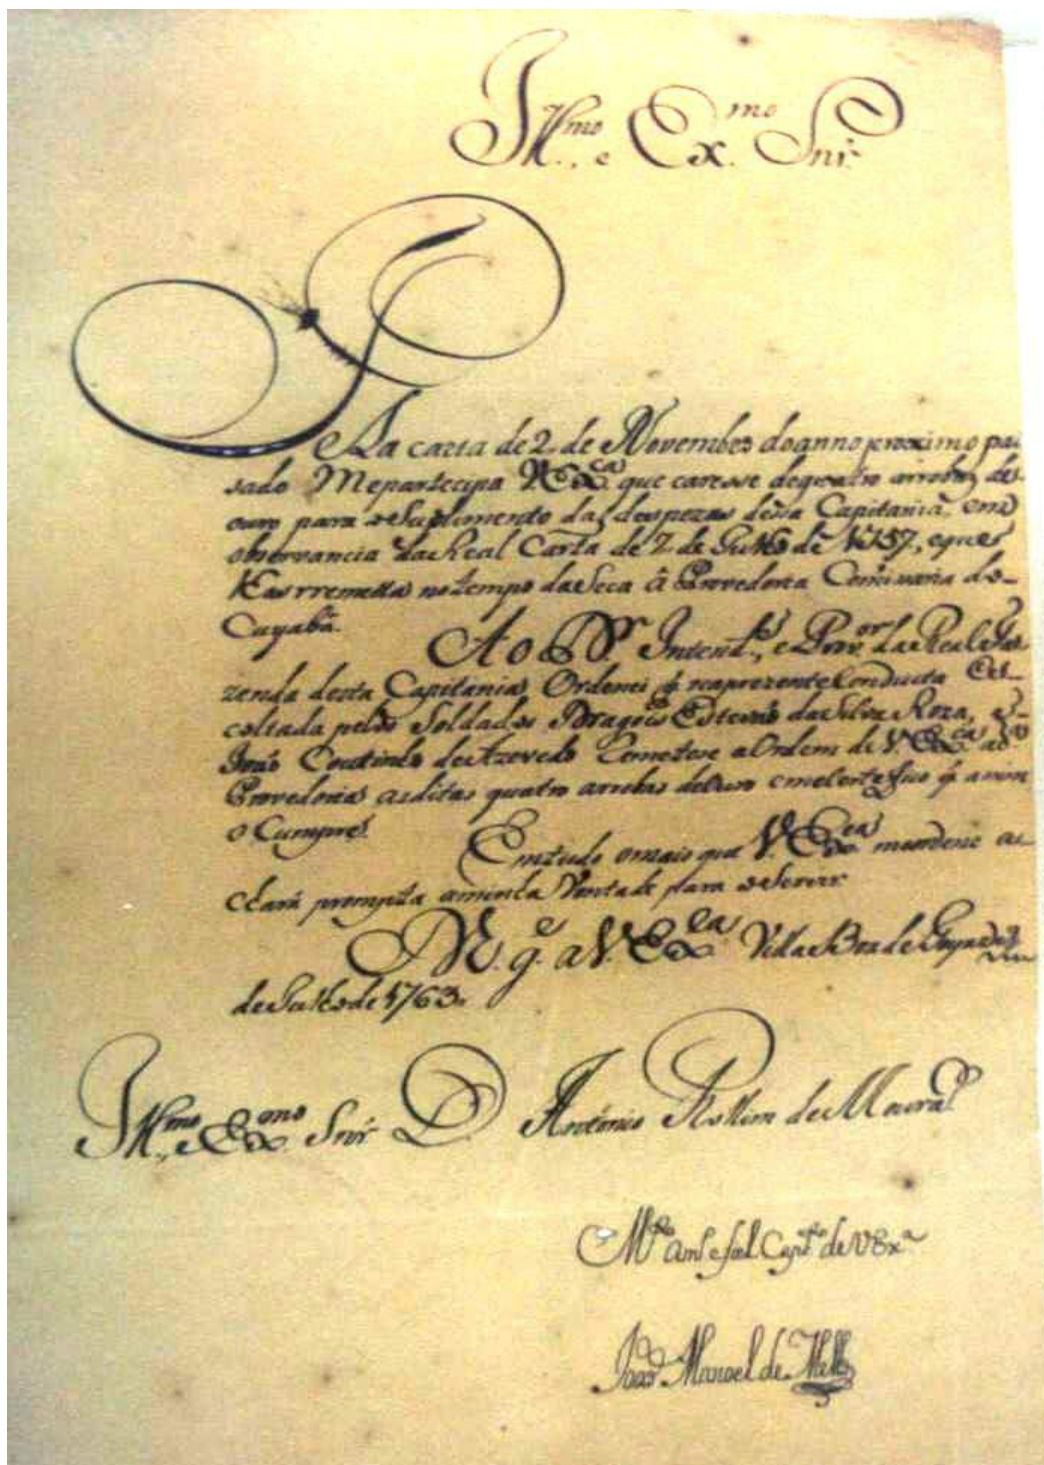 Ill.mo e Ex.mo Snr.
Na carta de 2 de Novembro do anno proximo pas
sado Me partecipa V. Ex.ca que caresse de quatro arrobas de
ouro para o Suplimento das despezas dessa Capitania, em
observancia da Real Carta de 2 de de 1757, e que
no tempo da Seca â Provedoria Comissaria do
Cuyabâ.
Ao Dr. Intend.te, e Prov.or da Real Fa
zenda desta Capitania, Ordenei q na prezente Conducta Es
coltada pelos Soldados Dragois Estevaõ da Silva Roza, e
Joaõ Coutinho de Azevedo Remetese a Ordem de V. Ex.ca ao
Provedoria as ditas quatro arrobas de ouro e me certefico q assim
o Cumpre.
Em tudo o mais que V. Ex.ca me ordene a
chará prompta a minha Vontade para o Servir
D. g.e a V. Ex.ca Villa Boa de Goyaz
de Julho de 1763.
Ill.mo e Ex.mo Snr. D. Antonio Rollim de Moura
M.to Am.e e fiel Capt.o de V Ex.a
Joaõ Manoel de Mello